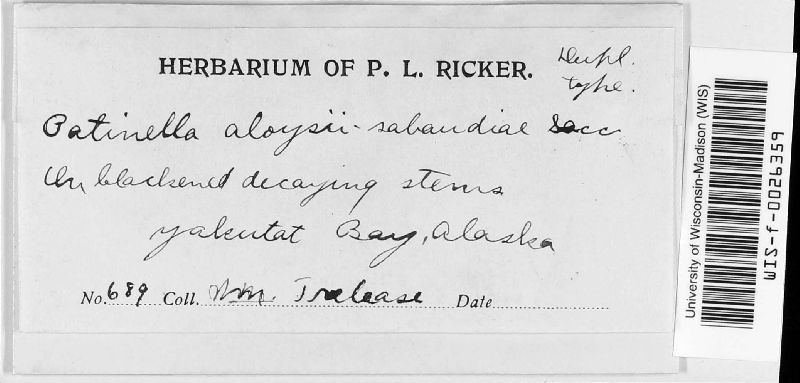 HERBARIUM OF P. L. RICKER.
Dupl.
type.
Patinella aloysii-sabaudiae Sacc
On blackened decaying stems
Yakutat Bay, Alaska
No. 689 Coll. Wm. Trelease Date
University of Wisconsin-Madison (WIS)
WIS-f-0026359